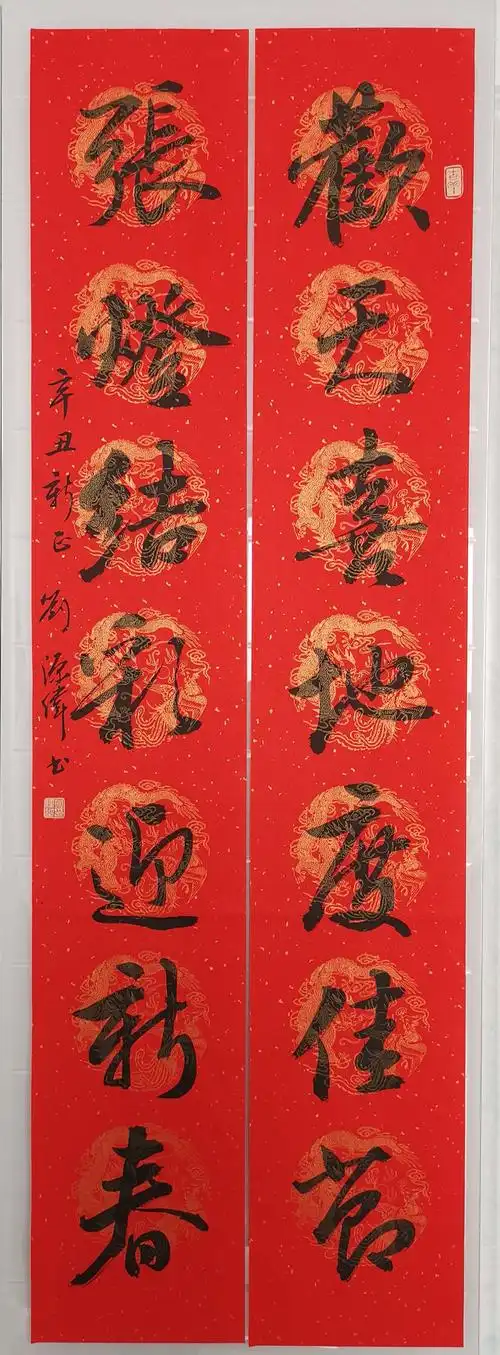 歡天喜地度佳節
張燈結彩迎新春
辛丑新正劉源偉書